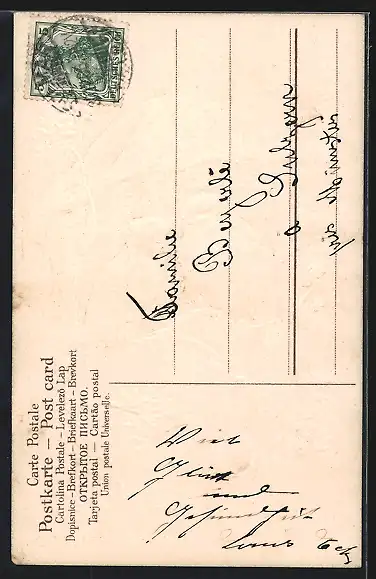 Carte Postale
Postkarte – Post card
Cartolina Postale – Levelező Lap
Dopisnice – Brefkort – Briefkaart – Brevkort
ОТКРЫТОЕ ПИСЬМО.
Tarjeta postal – Cartão postal
Union postale Universelle.
5
Familie
a Sulzern
bis Münster
Viel
Glück
und
Gesundheit